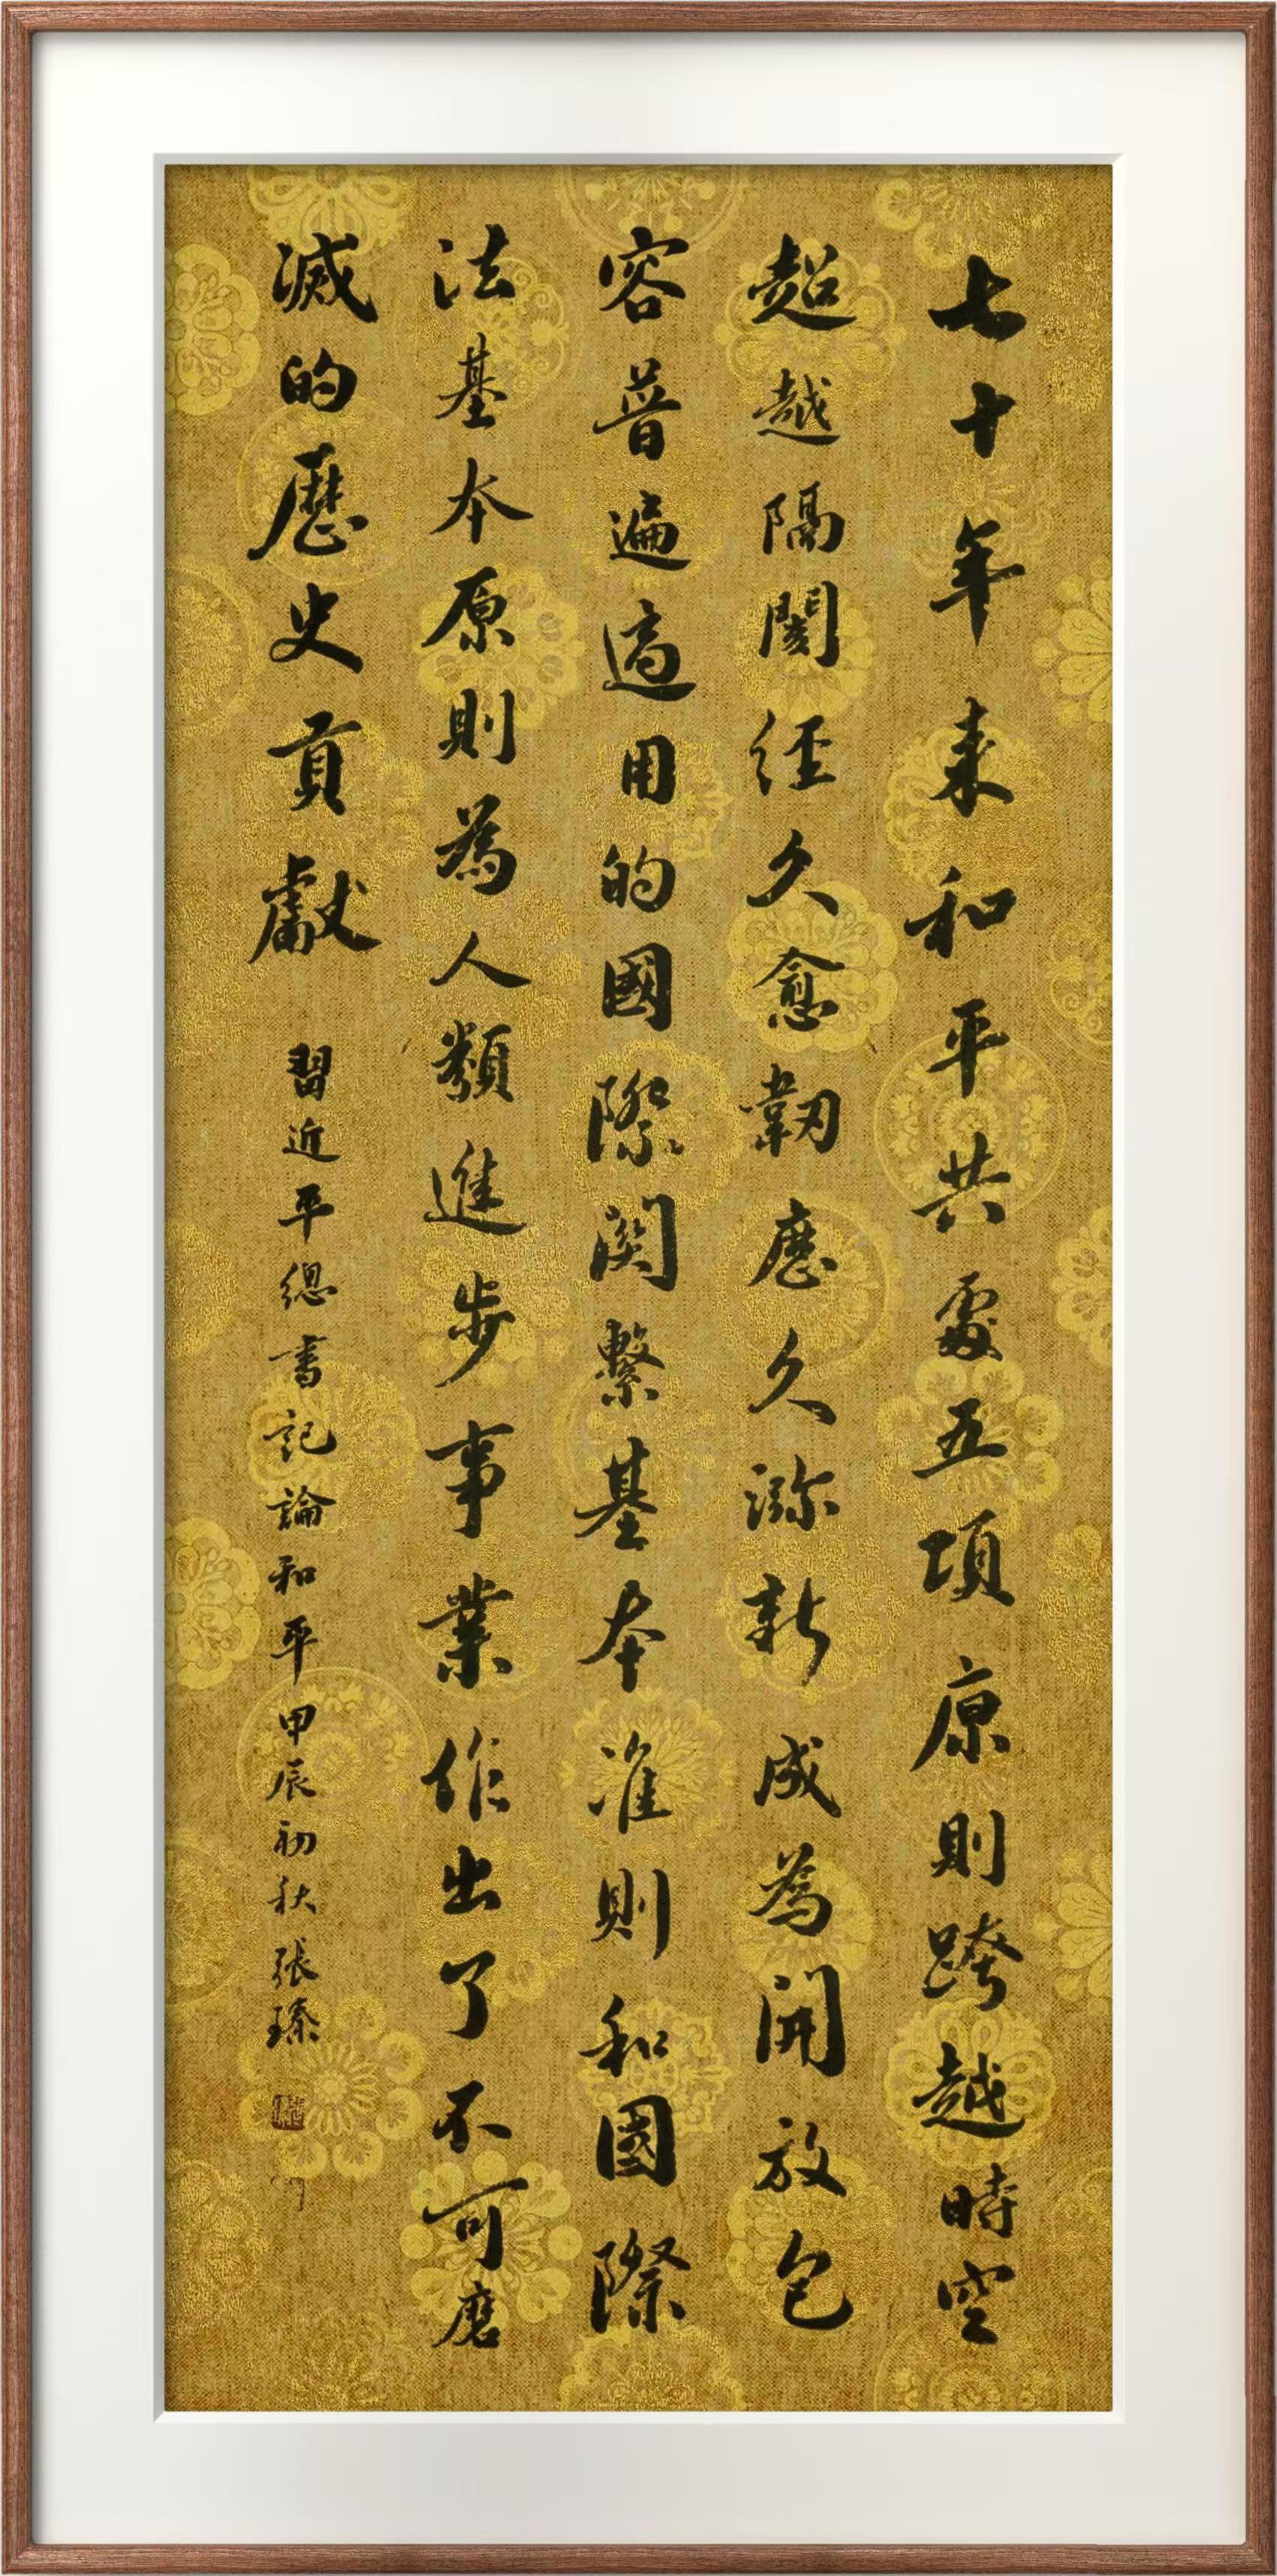 七十年来和平共處五項原則跨越時空
超越隔閡经久愈韌歷久弥新成為開放包
容普遍適用的國際関繫基本准則和國際
法基本原則為人類進步事業作出了不可磨
滅的歷史貢獻
習近平總書記論和平甲辰初秋張瑧